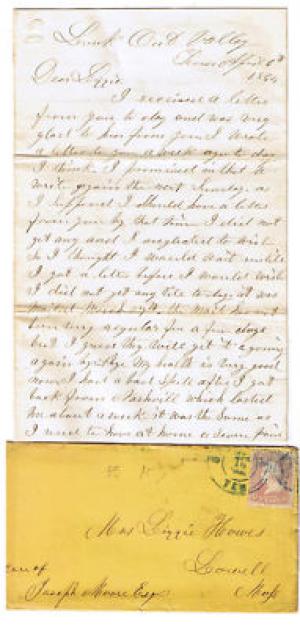 Look Out Valley
Tenn April 6th
1864
Dear Lizzie
I received a letter
from you to day and was very
glad to hear from you I wrote
a letter to you a week ago to day
I think. I promised in that to
write again the next Sunday. as
I supposed I should have a letter
from you by that time I did not
get any and I neglected to write
So I thought I would wait until
I got a letter before I would write
I did not get any till to day it was
the mail has not
been very regular for a few days
but I guess they will get it agoing
again My health is very good
now I had a bad Spell after I got
back from Nashvill which lasted
me about a week it was the same as
I used to have at home a severe pain
TEN
Mrs Lizzie Howes
Lowell
Mass
care of
Joseph Moore Esq